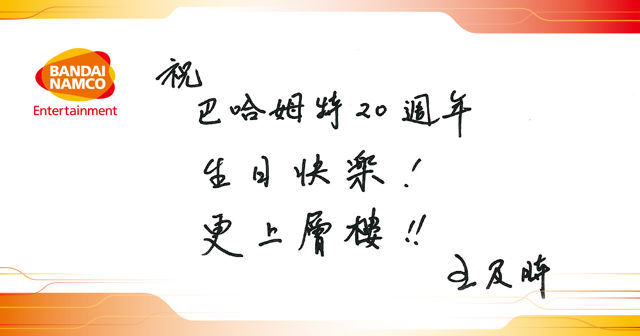 BANDAI
NAMCO
Entertainment
祝
巴哈姆特20週年
生日快樂!
更上層樓!!
王及時